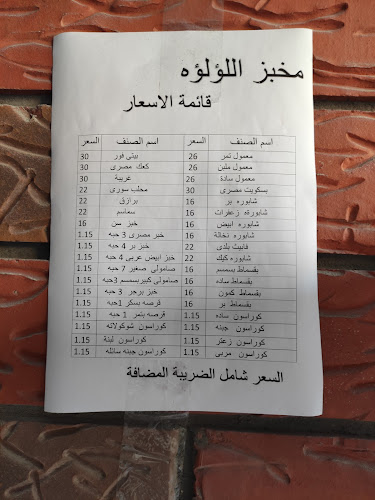 مخبز اللؤلؤه
قائمة الاسعار
اسم الصنف السعر اسم الصنف السعر
معمول تمر 26 بيتى فور 30
معمول ملبن 26 كعك مصرى 30
معمول سادة 26 غريبة 30
بسكويت مصرى 30 مخلب سورى 22
شابوره بر 16 برازق 22
شابورة زعفرات 16 سماسم 22
شابوره ابيض 16 خبز سن 16
شابوره نخالة 16 خبز مصرى 3 حبه 1.15
فايبت بلدى 22 خبز بر 4 حبه 1.15
شابوره كيك 22 خبز ابيض عربى 4 حبه 1.15
بقسماط بسمسم 16 صامولى صغير 7 حبه 1.15
بقسماط ساده 16 صامولى كبيربسمسم 3حبه 1.15
بقسماط كمون 16 خبز برجر 3 حبه 1.15
بقسماط بر 16 قرصه بسكر 1حبه 1.15
كوراسون ساده 1.15 قرصه بتمر 1 حبه 1.15
كوراسون جبنه 1.15 كوراسون شوكولاته 1.15
كوراسون زعتر 1.15 كوراسون لبنة 1.15
كوراسون مربى 1.15 كوراسون جبنه سائله 1.15
السعر شامل الضريبة المضافة